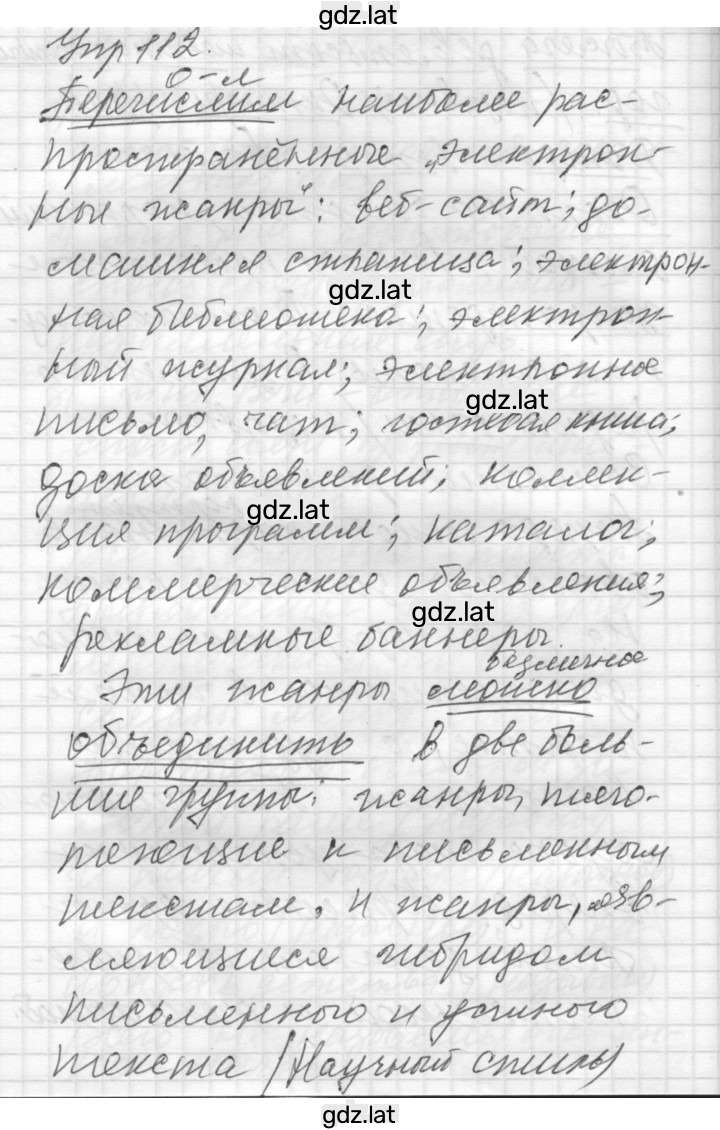 gdz.lat
Упр 112.
о-л
Перечислим наиболее рас-
пространённые „электрон-
ные жанры": веб-сайт; до-
машняя страница; электрон-
gdz.lat
ная библиотека; электрон-
ный журнал; электронное
gdz.lat
письмо, чат; гостевая книга;
доска объявлений; коллек-
gdz.lat
ция программ; каталог;
коммерческие объявления;
gdz.lat
рекламные баннеры.
безличное
Эти жанры можно
объединить в две боль-
шие группы: жанры, тяго-
теющие к письменным
текстам, и жанры, явля-
ляющиеся гибридом
письменного и устного
текста (Научный стиль)
gdz.lat